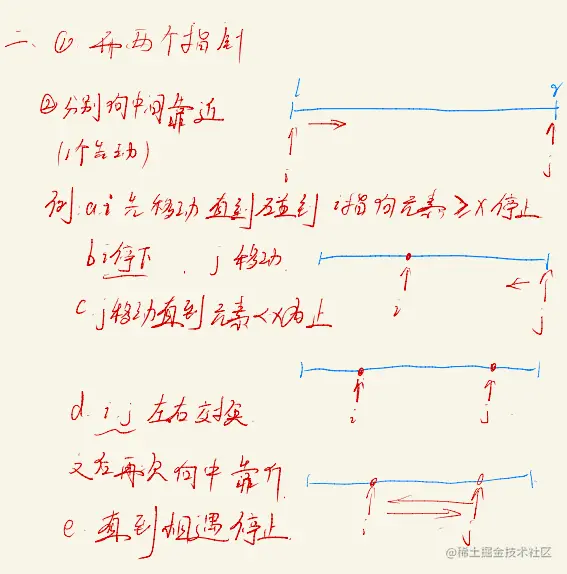 二、① 用两个指针
② 分别向中间靠近
(1个先动)
l r
i j
例: a. i 先移动 直到碰到 i指向元素 ≥ x 停止
b i停下 . j 移动.
i j
c. j移动直到元素<x为止
i j
d. i. j 左右交换
之后再次向中靠齐
e. 直到相遇停止.
i j
@稀土掘金技术社区